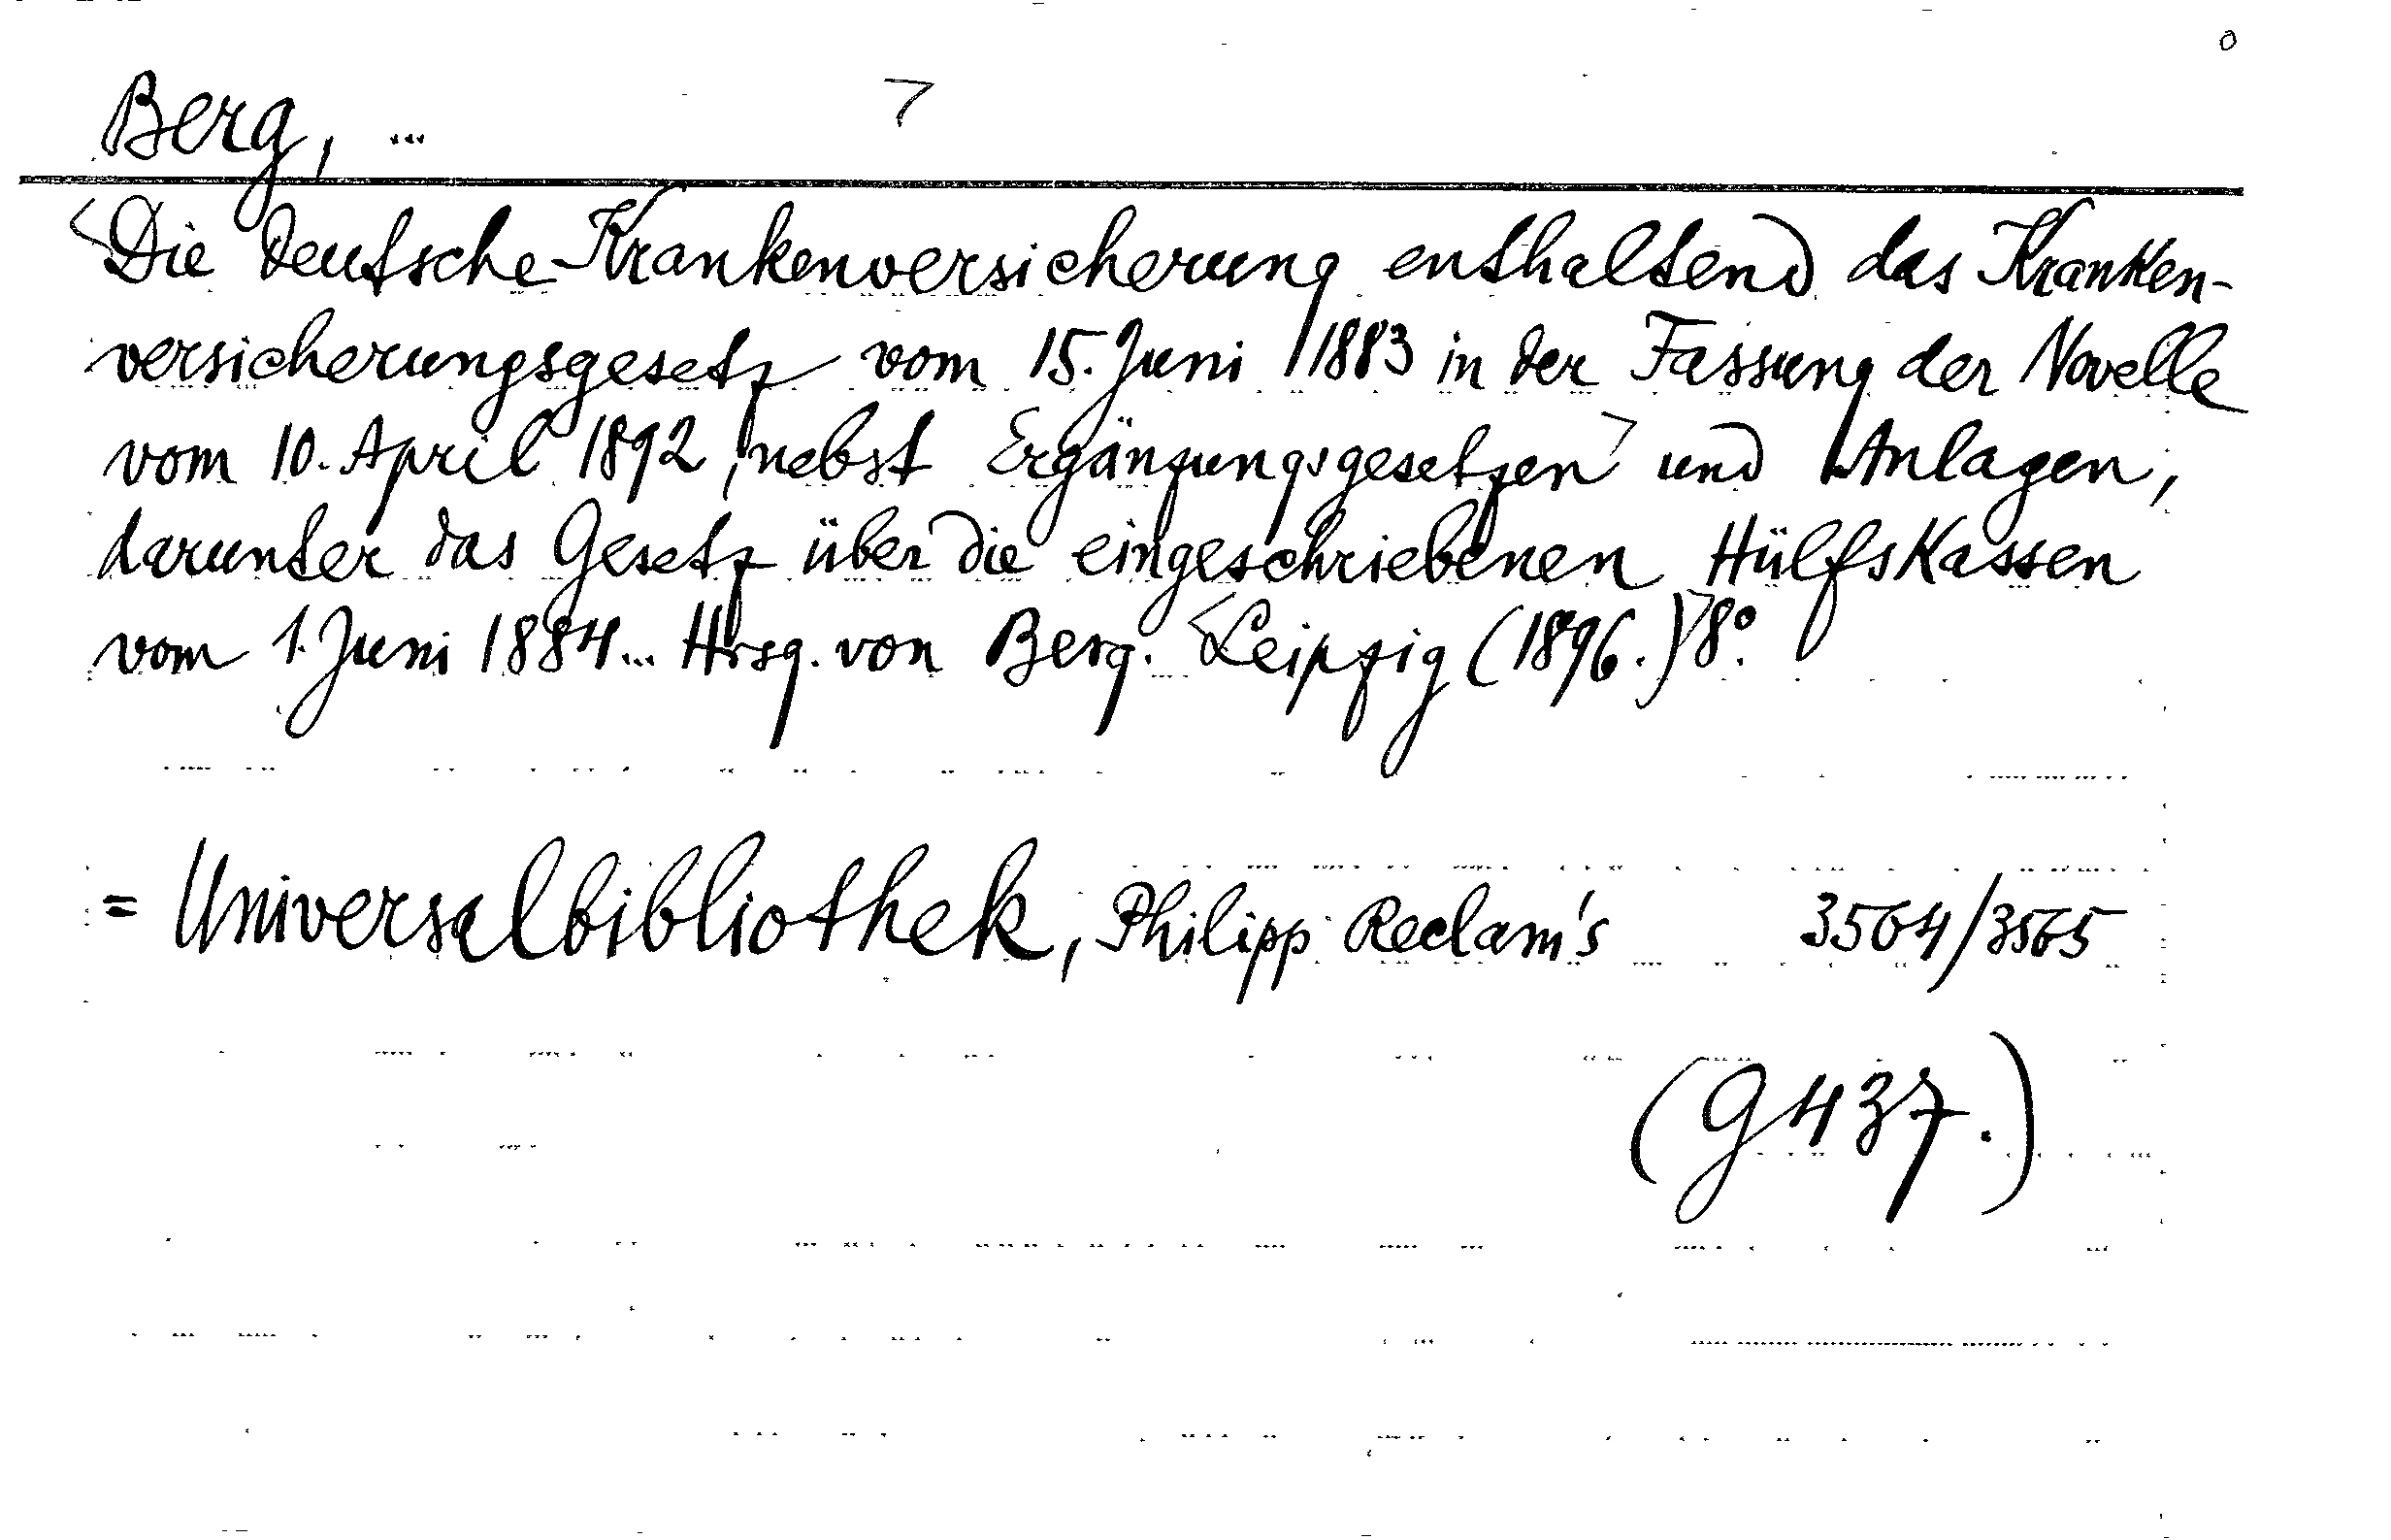 Berg, ...
Die deutsche Krankenversicherung enthaltend das Kranken-
versicherungsgesetz vom 15. Juni 1883 in der Fassung der Novelle
vom 10. April 1892, nebst Ergänzungsgesetzen und Anlagen,
darunter das Gesetz über die eingeschriebenen Hülfskassen
vom 1. Juni 1884... Hrsg. von Berg. Leipzig (1896.) 8°.
= Universalbibliothek, Philipp Reclam's 3564/3565
(G 437.)